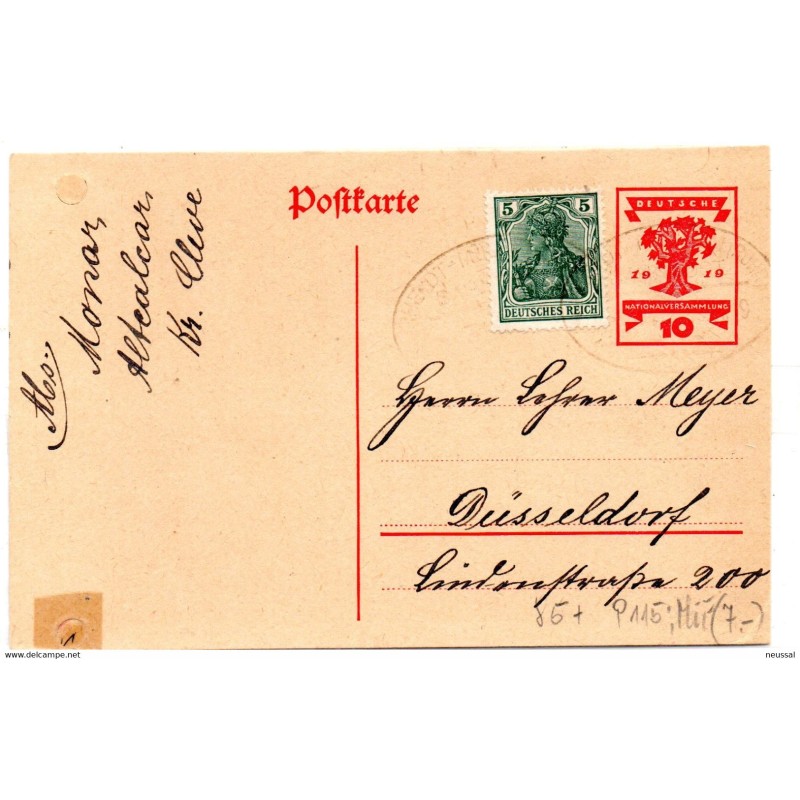 Postkarte
5 5
DEUTSCHES REICH
DEUTSCHE
19 19
NATIONALVERSAMMLUNG
10
Abs.:
Monar,
Altcalcar,
Kr. Cleve
Herrn Lehrer Meyer
Düsseldorf
Lindenstraße 200
85+ P115; (7.-)
www.delcampe.net
neussal